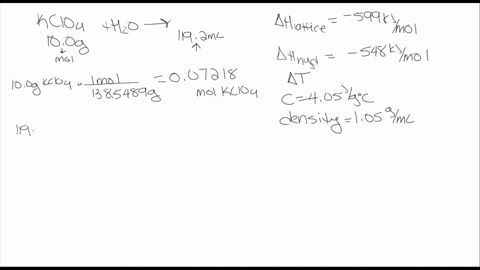 KClO4 + H2O → 119.2mL
10.0g
mol
10.0g KClO4 · 1mol / 138.5489g = 0.07218 mol KClO4
119.
ΔHlattice = -599 kJ/mol
ΔHhyd = -548 kJ/mol
ΔT
C = 4.05 J/g°C
density = 1.05 g/mL